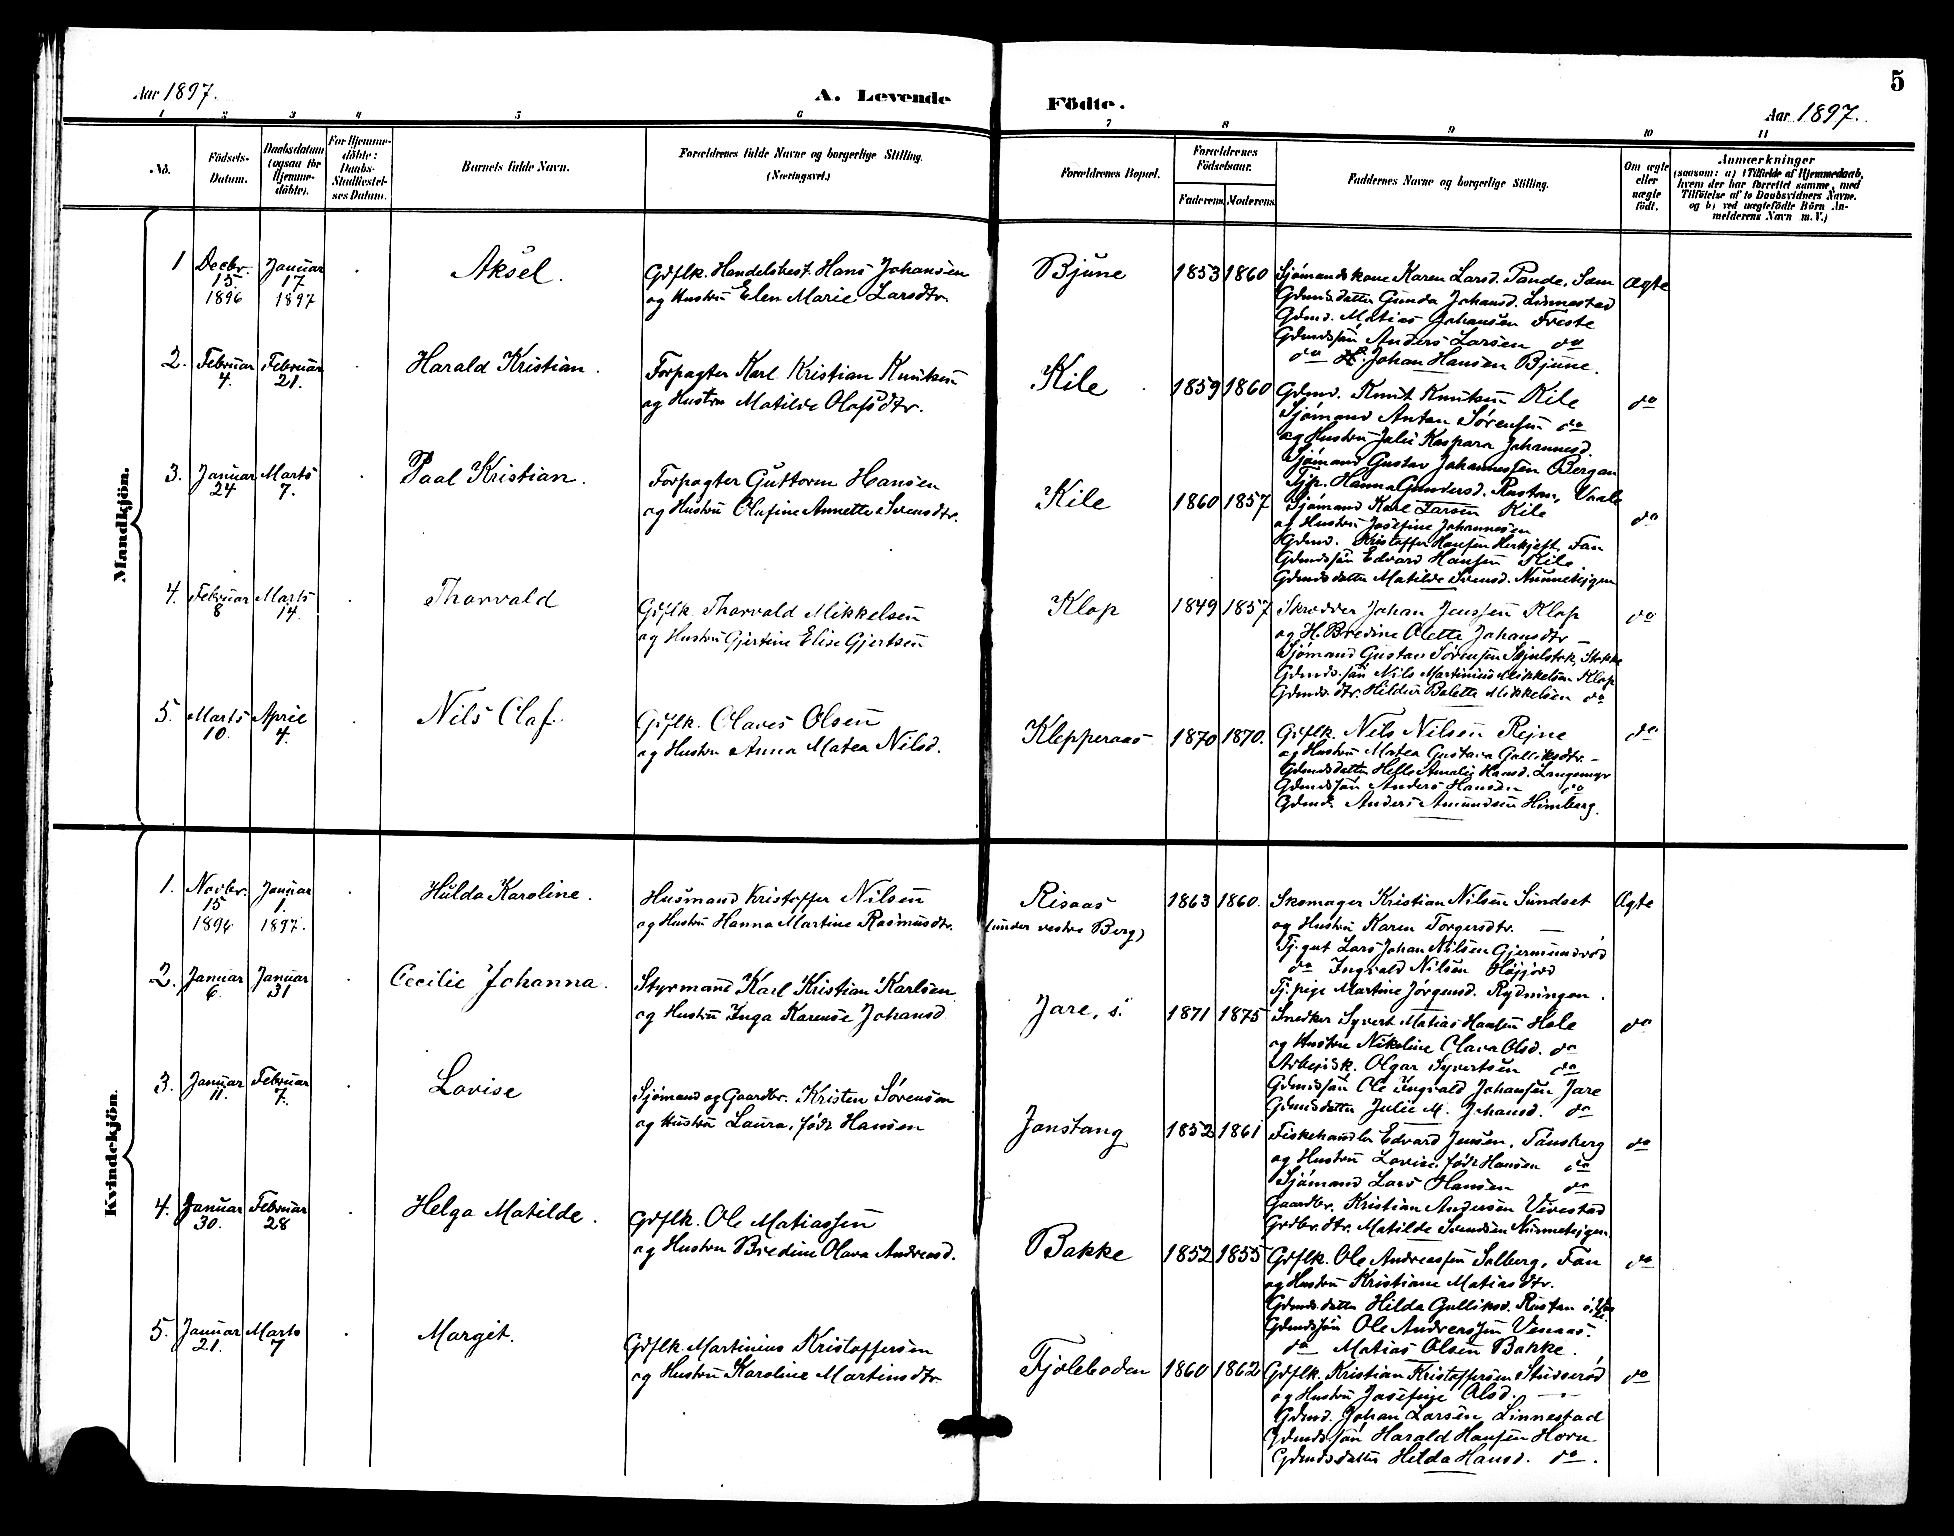 Aar 1897.
A. Levende
Födte.
5
Aar 1897.
1 2 3 4 5 6 7 8 9 10 11
No.
Födsels-
Datum.
Daabsdatum
(ogsaa for
Hjemme-
døbte).
For Hjemme-
døbte:
Daabs-
Stadfæstel-
ses Datum.
Barnets fulde Navn.
Forældrenes fulde Navne og borgerlige Stilling.
(Næringsvei.)
Forældrenes Bopæl.
Forældrenes
Födselsaar.
Faderens. Moderens.
Faddernes Navne og borgerlige Stilling.
Om ægte
eller
uægte
født.
Anmærkninger
(saasom: a) i Tilfælde af Hjemmedaab,
hvem der har forrettet samme, med
Tilføielse af to Daabsvidners Navne.
og b) ved uægtefødte Börn An-
melderens Navn m. V.)
Mandkjön.
1 Decbr. 15 1896
Januar 17 1897
Aksel.
Gdflk. Handelsbest. Hans Johansen
og Hustru Elen Marie Larsdtr.
Bjune 1853 1860
Sjømandskone Karen Larsd. Pande, Sem
Gdmdsdatter Gunda Johansd. Linnestad
Gdmd. Matias Johansen Freste
Gdmdssøn Anders Larsen do
do H. Johan Hansen Bjune.
Ægte
2. Februar 4.
Februar 21.
Harald Kristian.
Forpagter Karl Kristian Knutsen
og Hustru Matilde Olafsdtr.
Kile 1859 1860
Gdmd. Knut Knutsen Kile
Sjømand Anton Sørensen do
og Hustru Julie Kaspara Johannesd.
Sjømand Gustav Johannessen Bergan
Tjp. Hanna Gundersd. Rastan, Vaale
do
3. Januar 24
Marts 7.
Paal Kristian.
Forpagter Guttorm Hansen
og Hustru Olafine Annette Svensdtr.
Kile 1860 1857
Sjømand Karl Larsen Kile
og Hustru Josefine Johannesen
Gdmd. Kristoffer Hansen Herkjest, Fan
Gdmdssøn Edvard Hansen Kile
Gdmdsdatter Matilde Svensd. Nunnetejgen
do
4. Februar 8
Marts 14.
Thorvald
Gdflk. Thorvald Mikkelsen
og Hustru Gjertine Elise Gjertsen
Klop 1849 1857
Skrædder Johan Jenssen Klop
og H. Bredine Olette Johansdtr —
Sjømand Gustav Sørensen Skjelstok, Stokke
Gdmdssøn Nils Martinius Mikkelsen Klop
Gdmds.dtr. Hilder Balette Mikkelsen do
do
5. Marts 10.
April 4.
Nils Olaf.
Gdflk. Olaves Olsen
og Hustru Anna Matea Nilsd.
Klepperaas 1870 1870.
Gdflk. Nils Nilsen Rejne
og Hustru Matea Gustava Gulliksdtr. —
Gdmdsdatter Helle Amalie Hansd. Langemyr
Gdmdssøn Anders Hansen do
Gdmd. Anders Amundsen Himberg.
do
Kvindekjön.
1. Novbr. 15 1896
Januar 1. 1897.
Hulda Karoline.
Husmand Kristoffer Nilsen
og Hustru Hanna Martine Rasmusdtr.
Risaas
(under vestre Berg)
1863 1860.
Skomager Kristian Nilsen Sundset
og Hustru Karen Torgersdtr. —
Tj.gut Lars Johan Nilsen Gjermundrød
do Ingvald Nilsen Højjord
Tj.pige Martine Jørgensd. Rydningen.
Ægte
2. Januar 6.
Januar 31
Cecilie Johanna.
Styrmand Karl Kristian Karlsen
og Hustru Inga Karense Johansd
Jare, s. 1871 1875
Snedker Syvert Matias Hansen Hole
og Hustru Nikoline Olava Olsd. do
Arbejdsk. Olgar Syvertsen do
Gdmdssøn Ole Ingvald Johansen Jare
Gdmdsdatter Julie M. Johansd. do
do
3. Januar 11.
Februar 7.
Lovise
Sjømand og Gaardbr. Kristen Sørensen
og Hustru Laura, født Hansen
Jonstang 1852 1861
Fiskehandler Edvard Jensen, Tønsberg
og Hustru Lovise, født Hansen do
Sjømand Lars Hansen do
Gaardbr. Kristian Andersen Vivestad
Grdbr.dtr. Matilde Svendsen Nunnetejgen
do
4. Januar 30.
Februar 28
Helga Matilde.
Gdflk. Ole Matiassen
og Hustru Bredine Olava Andreasd.
Bakke 1852 1855
Gdflk. Ole Andreassen Solberg, Fan
og Hustru Kristiane Matiasdtr.
Gdmdsdatter Hilda Gulliksd. Rustan
Gdmdssøn Ole Andreassen Venaas.
do Matias Olsen Bakke.
do
5. Januar 21.
Marts 7
Margit.
Gdflk. Martinius Kristoffersen
og Hustru Karoline Martinsdtr
Fjoleboden 1860 1862
Gdflk. Kristian Kristoffersen Studserød
og Hustru Josefine Olsd. —
Gdmd. Johan Larsen Linnestad
Gdmdssøn Harald Hansen Horn
Gdmdsdatter Hilda Hansd. do.
do